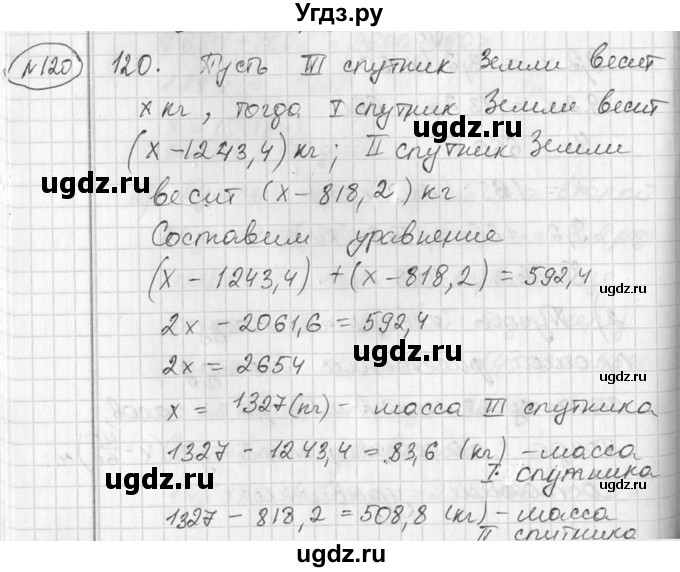 Угдз.ру
№120 120. Пусть III спутник Земли весит
x кг, тогда I спутник Земли весит
(x-1243,4) кг; II спутник Земли
ugdz.ru ugdz.ru
весит (x-818,2) кг
Составим уравнение
(x - 1243,4) + (x-818,2) = 592,4
ugdz.ru
2x - 2061,6 = 592,4
ugdz.ru
2x = 2654
ugdz.ru
x = 1327(кг) - масса III спутника
1327 - 1243,4 = 83,6 (кг) - масса
I спутника
ugdz.ru ugdz.ru
1327 - 818,2 = 508,8 (кг) - масса
II спутника
ugdz.ru